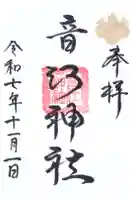 奉拝
音江神社
令和七年十一月一日